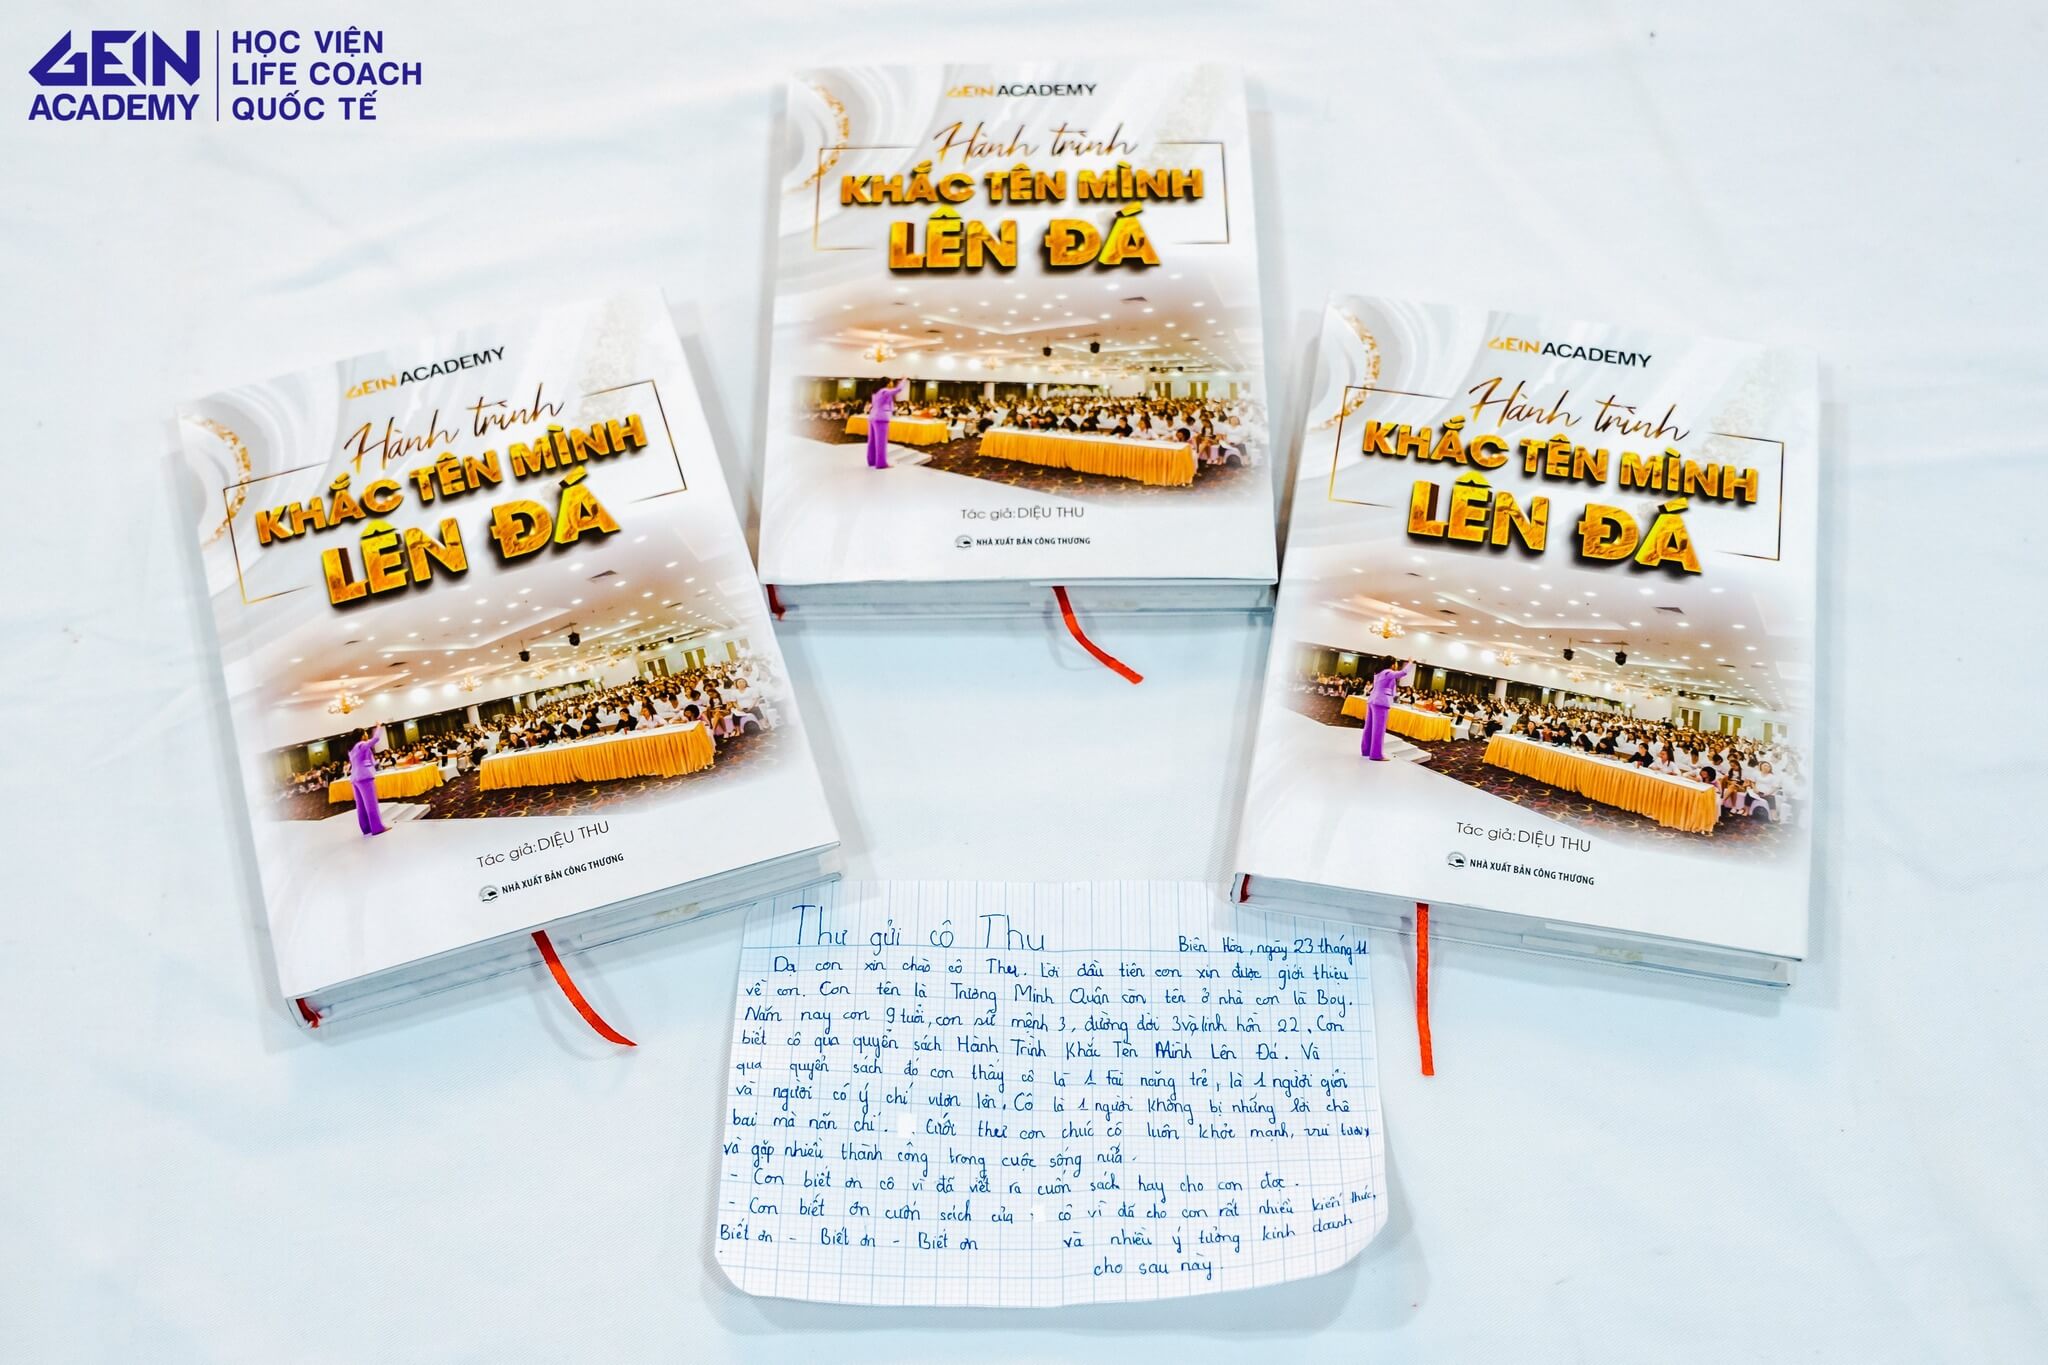 GEIN
ACADEMY
HỌC VIỆN
LIFE COACH
QUỐC TẾ
GEIN ACADEMY
Hành trình
KHẮC TÊN MÌNH
LÊN ĐÁ
Tác giả: DIỆU THU
NHÀ XUẤT BẢN CÔNG THƯƠNG
GEIN ACADEMY
Hành trình
KHẮC TÊN MÌNH
LÊN ĐÁ
Tác giả: DIỆU THU
NHÀ XUẤT BẢN CÔNG THƯƠNG
GEIN ACADEMY
Hành trình
KHẮC TÊN MÌNH
LÊN ĐÁ
Tác giả: DIỆU THU
NHÀ XUẤT BẢN CÔNG THƯƠNG
Thư gửi cô Thu
Biên Hòa, ngày 23 tháng 11
Dạ con xin chào cô Thu. Lời đầu tiên con xin được giới thiệu
về con. Con tên là Trương Minh Quân còn tên ở nhà con là Boy.
Năm nay con 9 tuổi, con sứ mệnh 3, đường đời 3 và linh hồn 22. Con
biết cô qua quyển sách Hành Trình Khắc Tên Mình Lên Đá. Và
qua quyển sách đó con thấy cô là 1 tài năng trẻ, là 1 người giỏi
và người có ý chí vươn lên. Cô là 1 người không bị những lời chê
bai mà nãn chí. Cuối thư con chúc cô luôn khỏe mạnh, vui tươi
và gặp nhiều thành công trong cuộc sống nữa.
- Con biết ơn cô vì đã viết ra cuốn sách hay cho con đọc.
- Con biết ơn cuốn sách của cô vì đã cho con rất nhiều kiến thức,
và nhiều ý tưởng kinh doanh
cho sau này.
Biết ơn - Biết ơn - Biết ơn